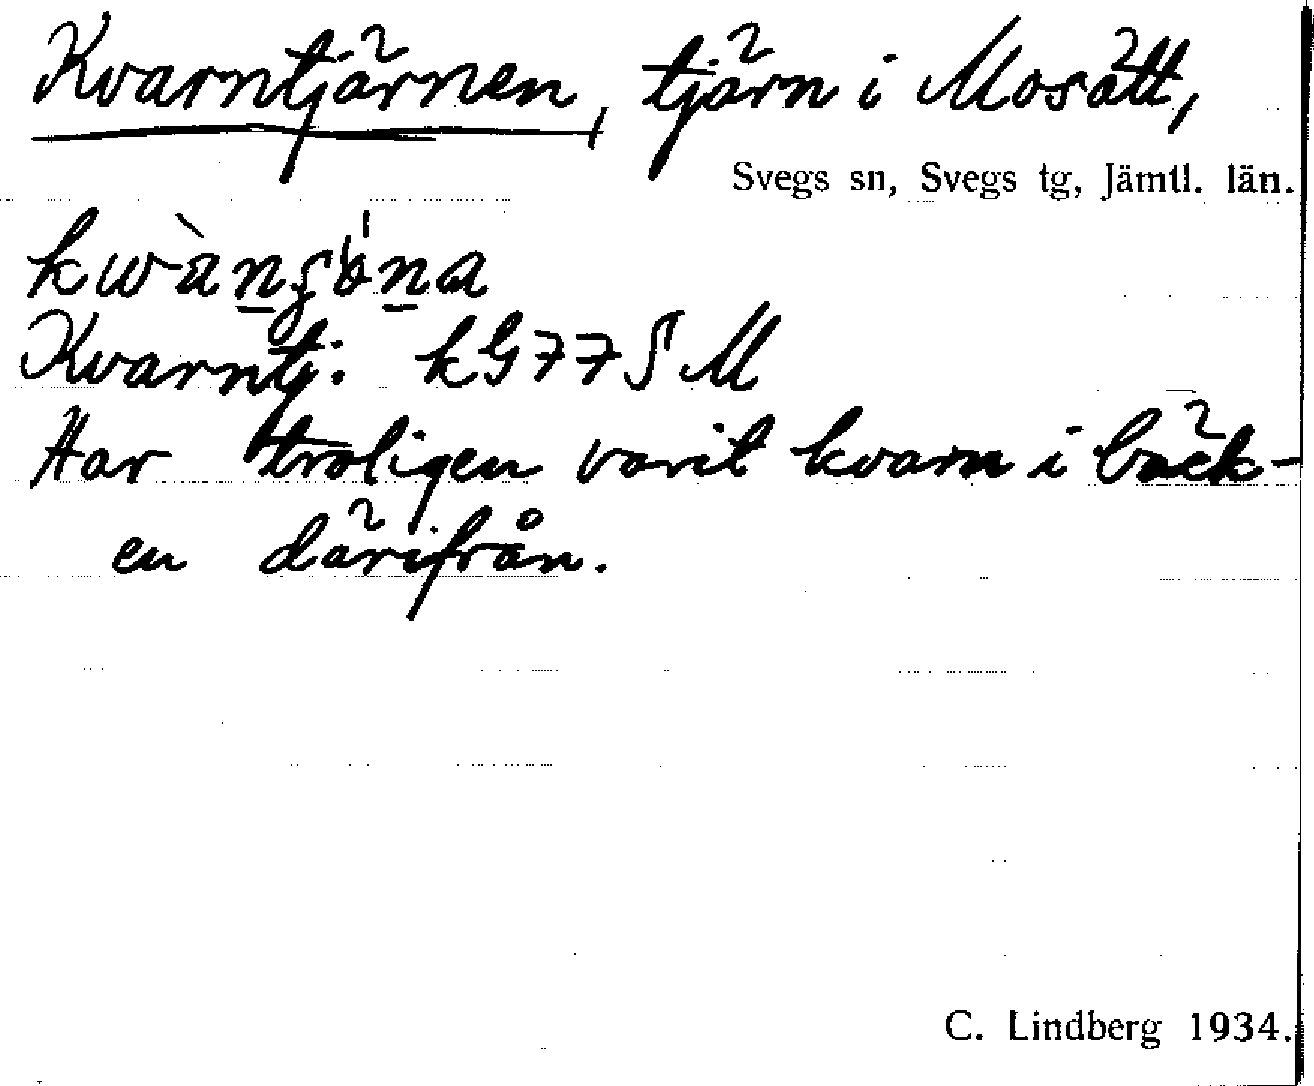 Kvarntjärnen, tjärn i Mosätt,
Svegs sn, Svegs tg, Jämtl. län.
Kvarntj. kG77SM
Har troligen varit kvarn i bäck-
en därifrån.
C. Lindberg 1934.